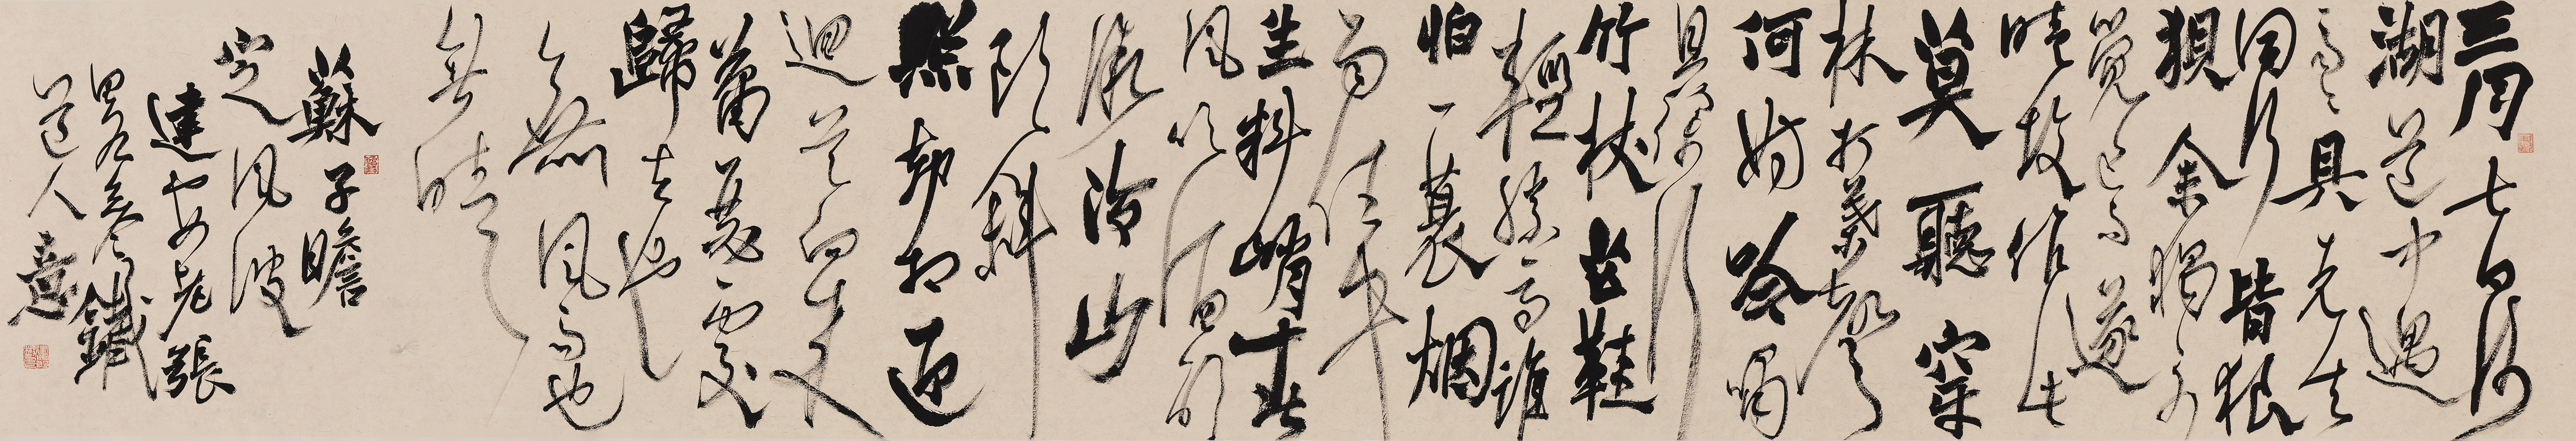 三月七日沙
湖道中遇
雨雨具先去
同行皆狼
狽余獨不
覺已而遂
晴故作此
莫聽穿
林打葉聲
何妨吟嘯
且徐行
竹杖芒鞋
輕勝馬誰
怕一蓑烟
雨任平
生料峭春
風吹酒醒
微冷山
頭斜
照却相迎
迴首向來
蕭瑟處
歸去也
亦無風雨也
無晴
蘇子瞻
定風波
達張
鐵
道人意